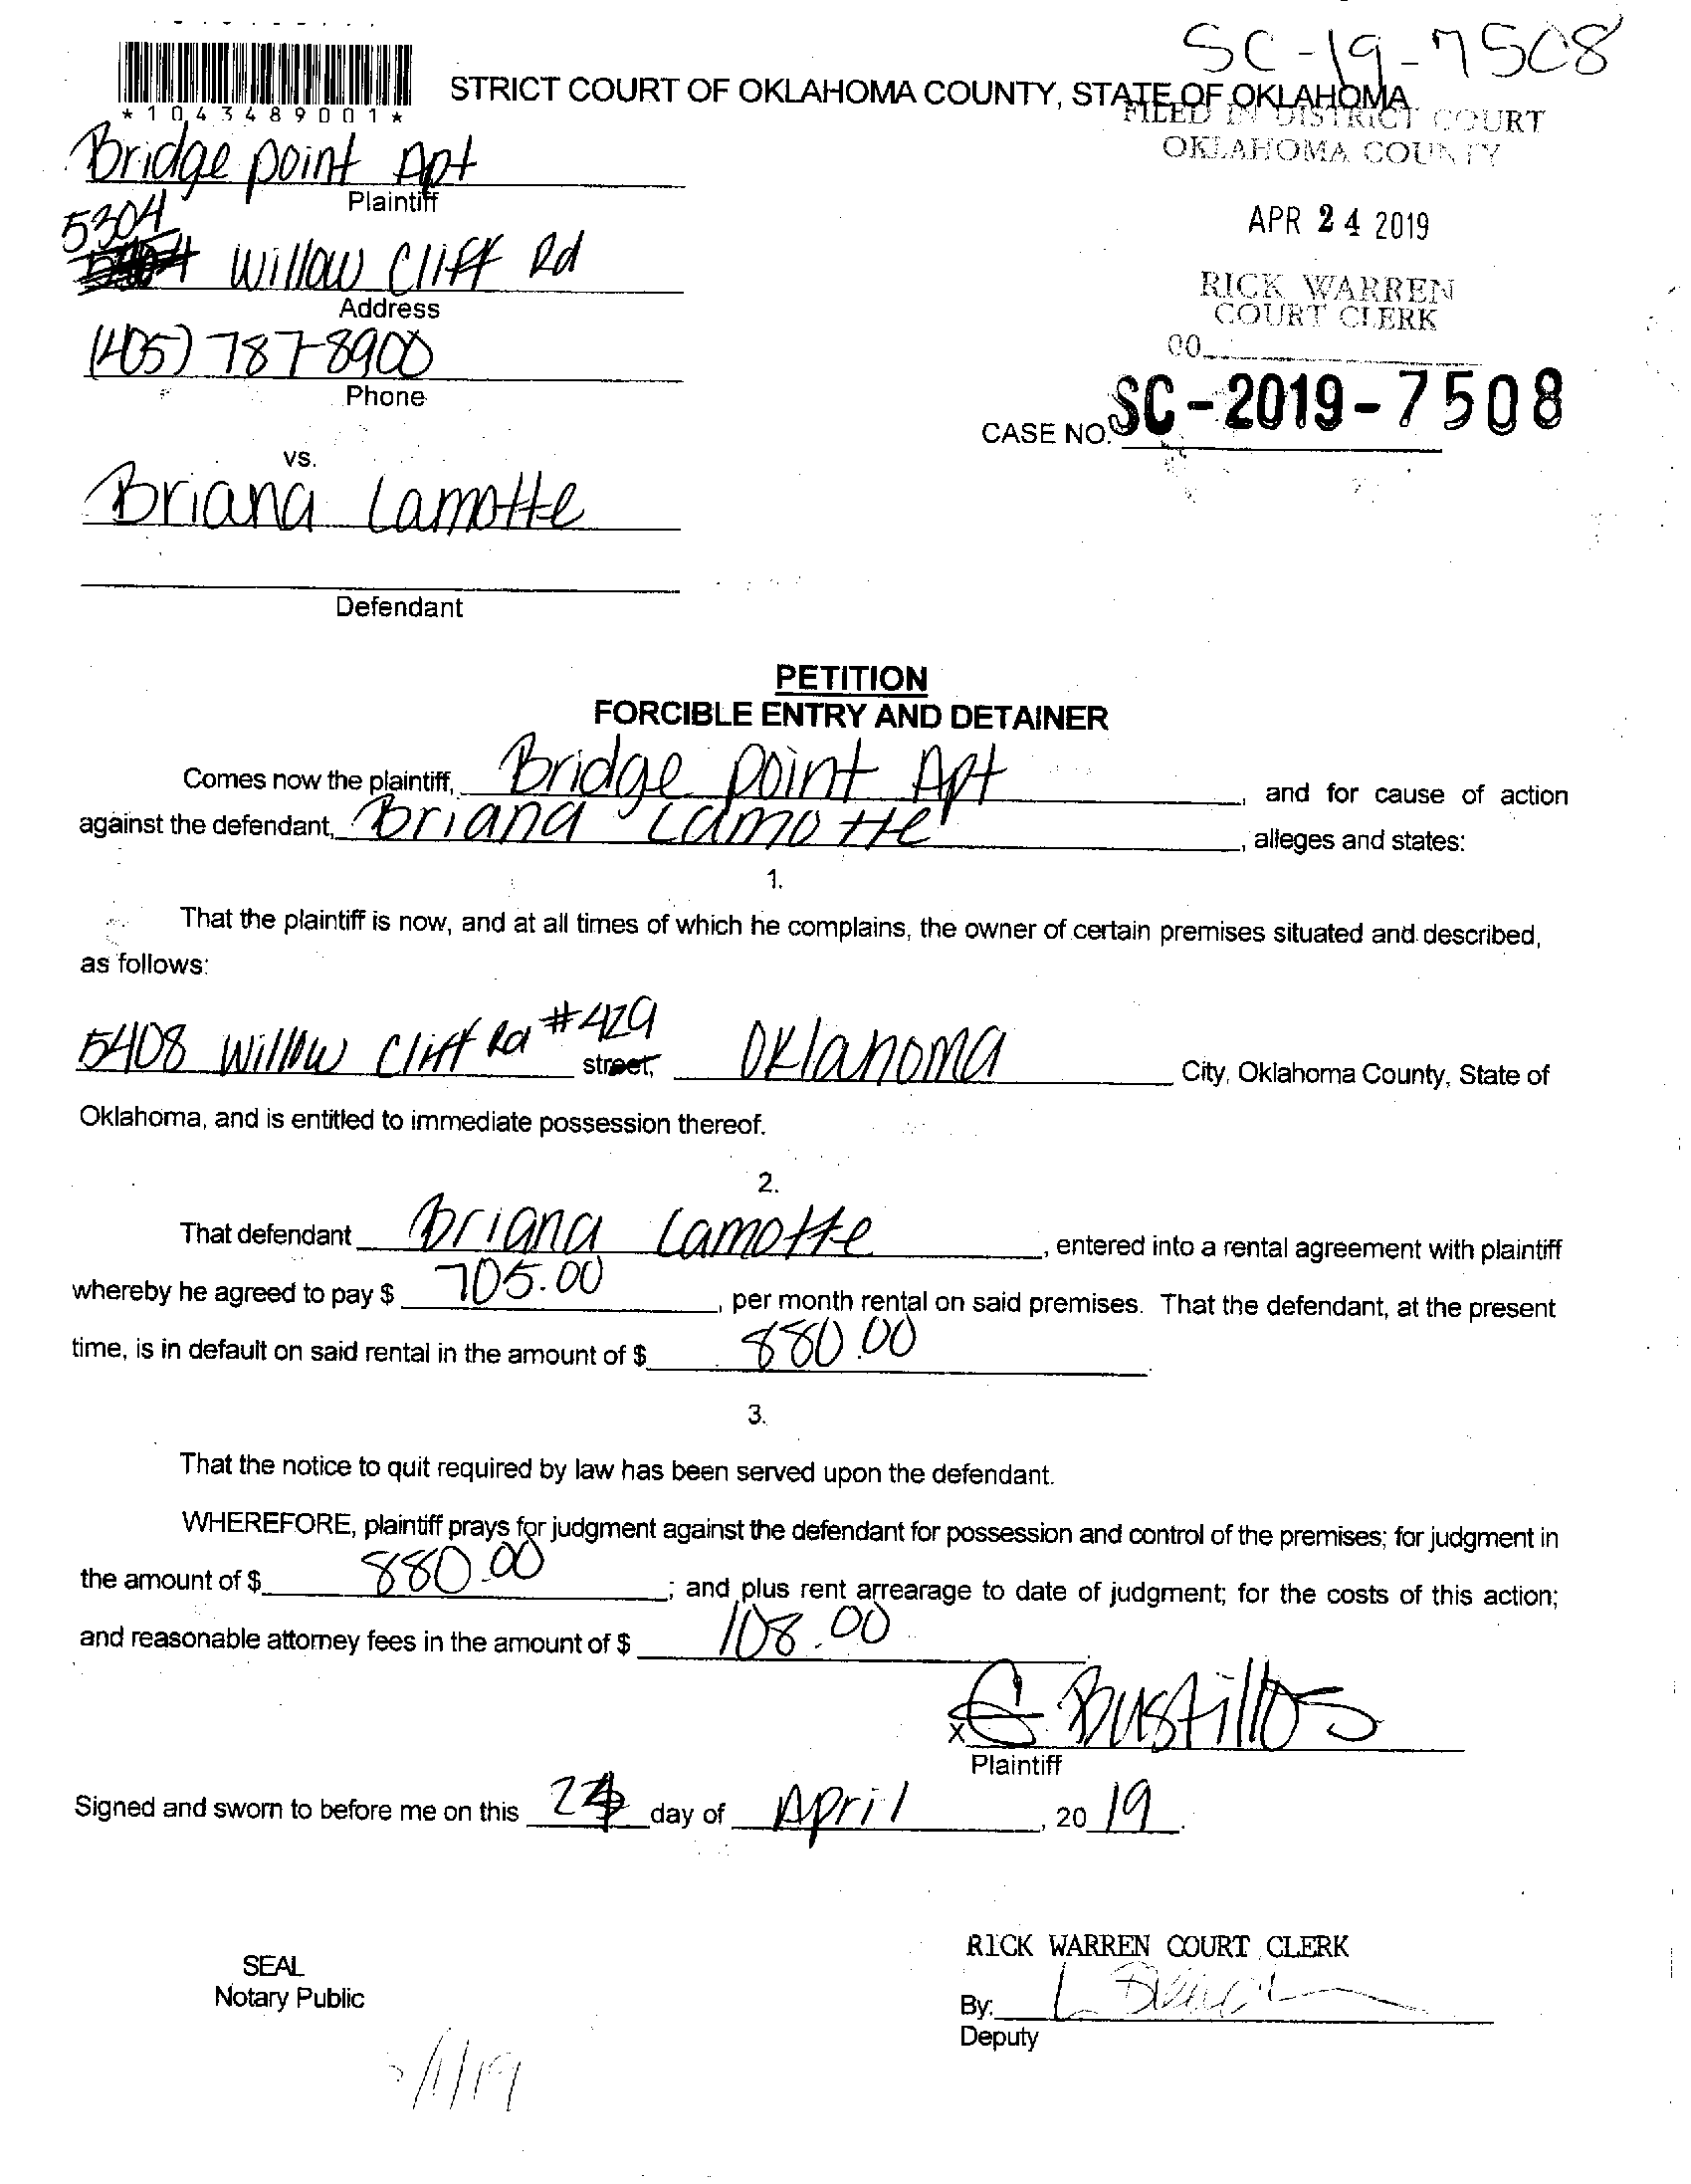 SC-19-7508
STRICT COURT OF OKLAHOMA COUNTY, STATE OF OKLAHOMA
*1043489001*
FILED IN DISTRICT COURT
OKLAHOMA COUNTY
Bridge point Apt
Plaintiff
APR 24 2019
5304
Willow Cliff Rd
Address
RICK WARREN
COURT CLERK
(405) 787-8900
Phone
00
CASE NO. SC-2019-7508
vs.
Briana Lamotte
Defendant
PETITION
FORCIBLE ENTRY AND DETAINER
Comes now the plaintiff, Bridge point Apt, and for cause of action
against the defendant, Briana Lamotte, alleges and states:
1.
That the plaintiff is now, and at all times of which he complains, the owner of certain premises situated and described,
as follows:
5408 Willow Cliff Rd #429 street, Oklahoma City, Oklahoma County, State of
Oklahoma, and is entitled to immediate possession thereof.
2.
That defendant Briana Lamotte, entered into a rental agreement with plaintiff
whereby he agreed to pay $ 705.00, per month rental on said premises. That the defendant, at the present
time, is in default on said rental in the amount of $ 880.00.
3.
That the notice to quit required by law has been served upon the defendant.
WHEREFORE, plaintiff prays for judgment against the defendant for possession and control of the premises; for judgment in
the amount of $ 880.00; and plus rent arrearage to date of judgment; for the costs of this action;
and reasonable attorney fees in the amount of $ 108.00.
x G Bustillos
Plaintiff
Signed and sworn to before me on this 24 day of April, 20 19.
SEAL
Notary Public
RICK WARREN COURT CLERK
By:
Deputy